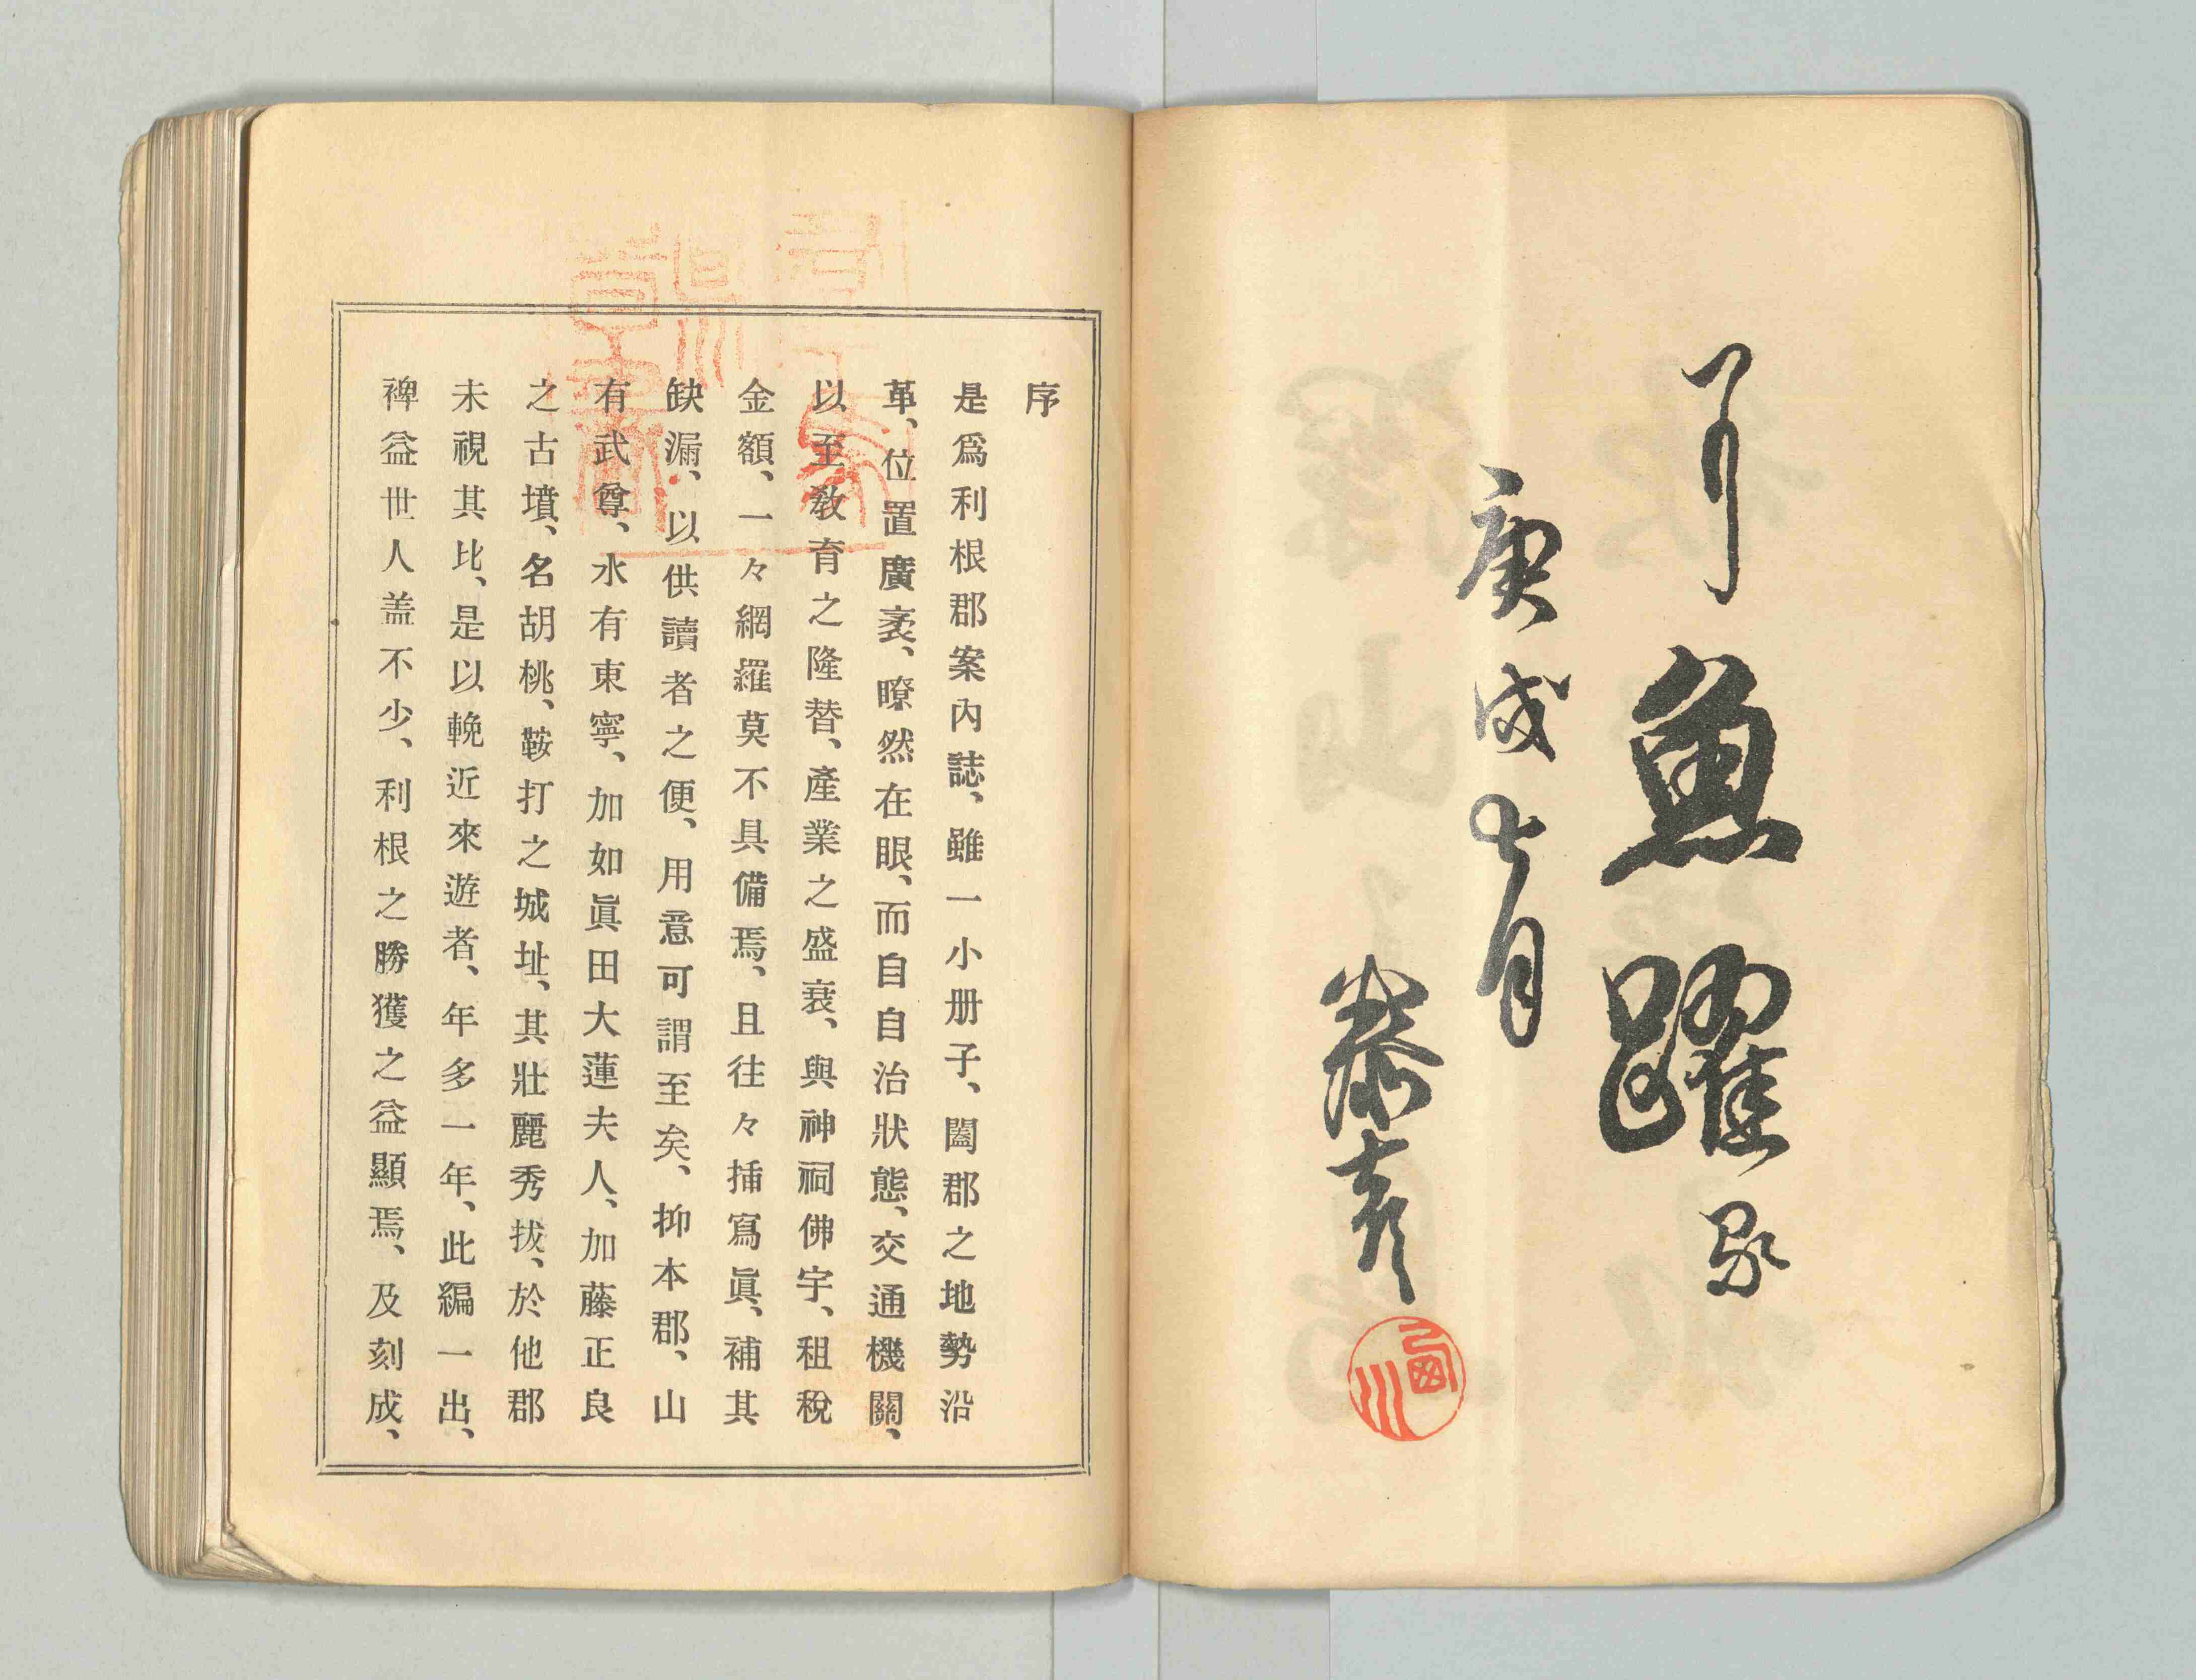 魚躍
庚戌七月
泰彦
序
是爲利根郡案內誌、雖一小册子、闔郡之地勢沿
革、位置廣袤、瞭然在眼、而自自治狀態、交通機關、
以至敎育之隆替、產業之盛衰、與神祠佛宇、租稅
金額、一々網羅莫不具備焉、且往々揷寫眞、補其
缺漏、以供讀者之便、用意可謂至矣、抑本郡、山
有武尊、水有東寧、加如眞田大蓮夫人、加藤正良
之古墳、名胡桃、鞍打之城址、其壯麗秀拔、於他郡
未視其比、是以輓近來遊者、年多一年、此編一出、
裨益世人盖不少、利根之勝獲之益顯焉、及刻成、